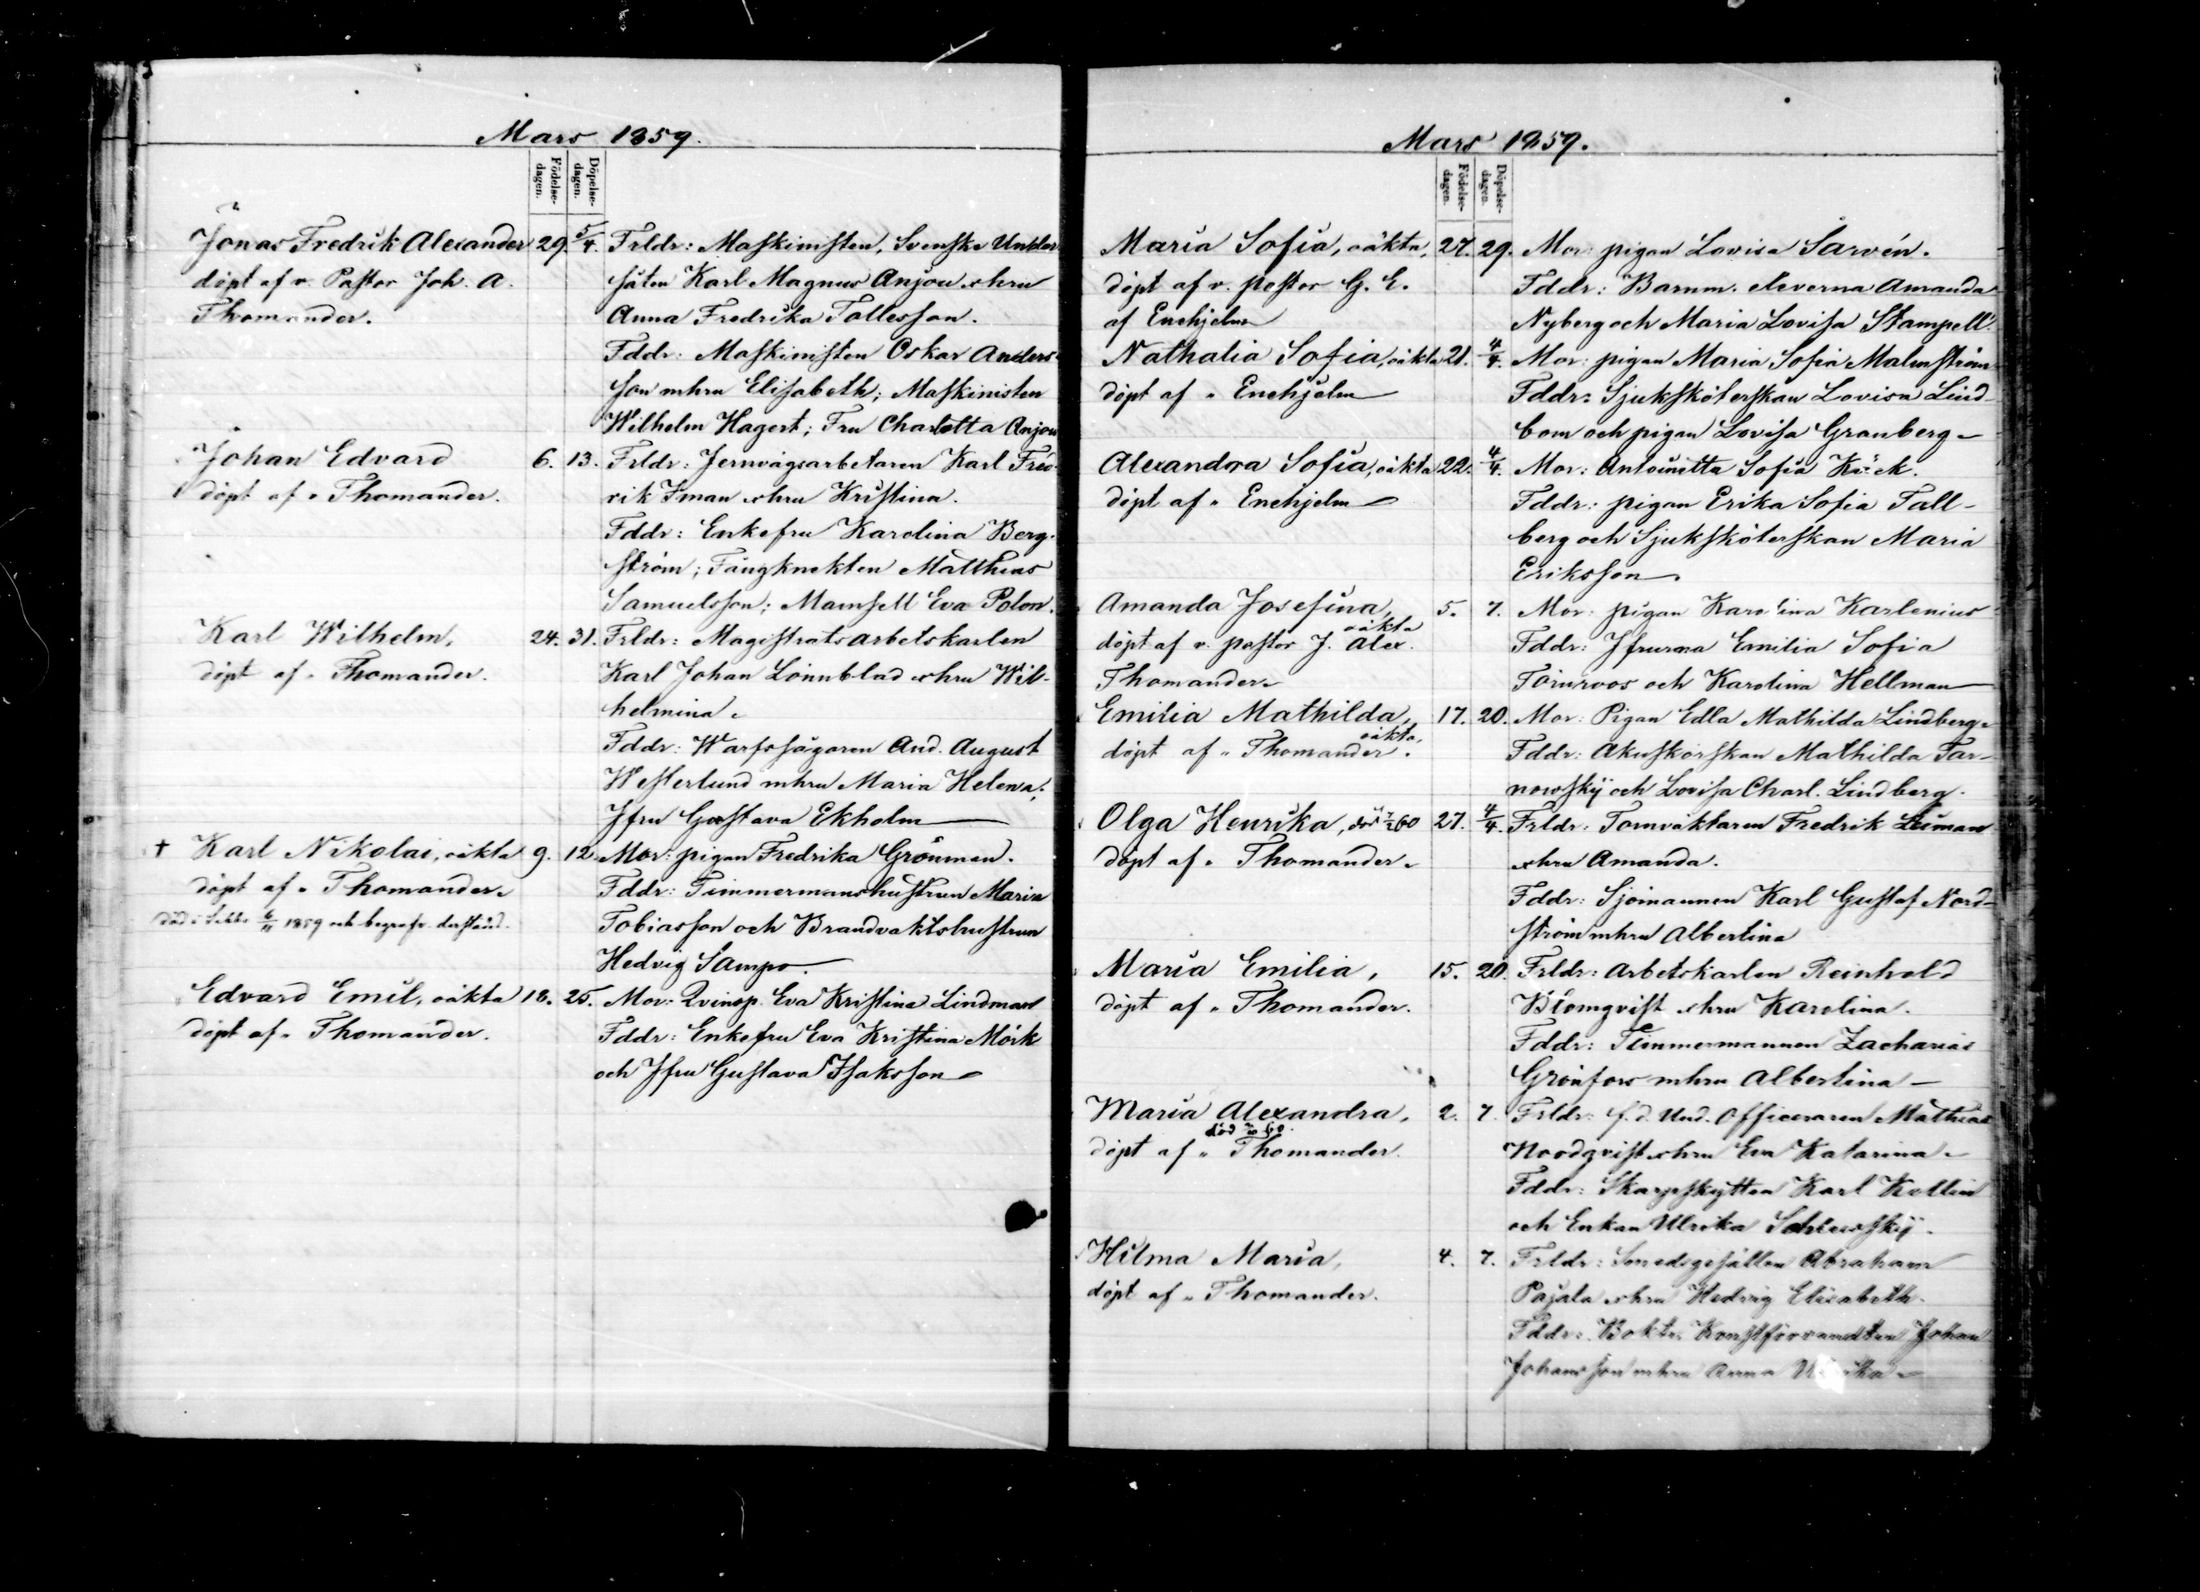 Mars 1859.
Födelse-
dagen.
Döpelse-
dagen.
Jonas Fredrik Alexander 29. 5/4. Frldr: Maskinisten, Svenske Under
döpt af v. Pastor Joh. A. såten Karl Magnus Anjou o hru
Thomander. Anna Fredrika Tallesson.
Fddr: Maskinisten Oskar Anders-
son m hru Elisabeth; Maskinisten
Wilhelm Hagert; Fru Charlotta Anjou
Johan Edvard 6. 13. Frldr: Jernvägsarbetaren Karl Fred-
döpt af " Thomander. rik Iman o hru Kristina.
Fddr: Enkefru Karolina Berg-
ström; Fångknekten Matthias
Samuelsson; Mamsell Eva Polon.
Karl Wilhelm, 24. 31. Frldr: Magistratsarbetskarlen
döpt af " Thomander. Karl Johan Lönnblad o hru Wil-
helmina.
Fddr: Warfsägaren And. August
Westerlund m hru Maria Helena;
Jfru Gustava Ekholm
+ Karl Nikolai, oäkta 9. 12. Mor: pigan Fredrika Grönman.
döpt af " Thomander. Fddr: Timmermanshustrun Maria
död i 1859 och begrafv. derstäd. Tobiasson och Brandvaktshustrun
Hedvig Sampo.
Edvard Emil, oäkta 18. 25. Mor: Qvinsp. Eva Kristina Lindman
döpt af " Thomander. Fddr: Enkefru Eva Kristina Mörk
och Jfru Gustava Isaksson
Mars 1859.
Födelse-
dagen.
Döpelse-
dagen.
Maria Sofia, oäkta, 27. 29. Mor: pigan Lovisa Sarvén.
döpt af v. pastor G. E. Fddr: Barnm. eleverna Amanda
af Enehjelm Nyberg och Maria Lovisa Stampell.
Nathalia Sofia, oäkta 21. 4/4. Mor: pigan Maria Sofia Malmström
döpt af " Enehjelm Fddr: Sjuksköterskan Lovisa Lind-
bom och pigan Lovisa Granberg
Alexandra Sofia, oäkta 22. 4/4. Mor: Antoinetta Sofia Köck.
döpt af " Enehjelm Fddr: pigan Erika Sofia Tall-
berg och Sjuksköterskan Maria
Eriksson.
Amanda Josefina, 5. 7. Mor: pigan Karolina Karlenius
oäkta
döpt af v. pastor J. Alex. Fddr: Jfrurna Emilia Sofia
Thomander. Törnroos och Karolina Hellman
Emilia Mathilda, 17. 20. Mor: Pigan Edla Mathilda Lindberg.
oäkta,
döpt af " Thomander. Fddr: Akuskörskan Mathilda Tar-
nowskij och Lovisa Charl. Lindberg.
Olga Henrika, död 60 27. 4/4. Frldr: Tornväktaren Fredrik Leiman
döpt af " Thomander. o hru Amanda.
Fddr: Sjömannen Karl Gustaf Nord-
ström m hru Albertina
Maria Emilia, 15. 20. Frldr: Arbetskarlen Reinhold
döpt af " Thomander. Blomqvist o hru Karolina.
Fddr: Timmermannen Zacharias
Grönfors m hru Albertina
Maria Alexandra, 2. 7. Frldr: f. d. Und. Officeraren Mathias
död 60.
döpt af " Thomander. Nordqvist o hru Eva Katarina.
Fddr: Skarpskytten Karl Kollin
och Enkan Ulrika
Hilma Maria, 4. 7. Frldr: Smedsgesällen Abraham
döpt af " Thomander. Pajala o hru Hedvig Elisabeth.
Fddr: Boktr. Konstförvandten Johan
Johansson m hru Anna Ulrika